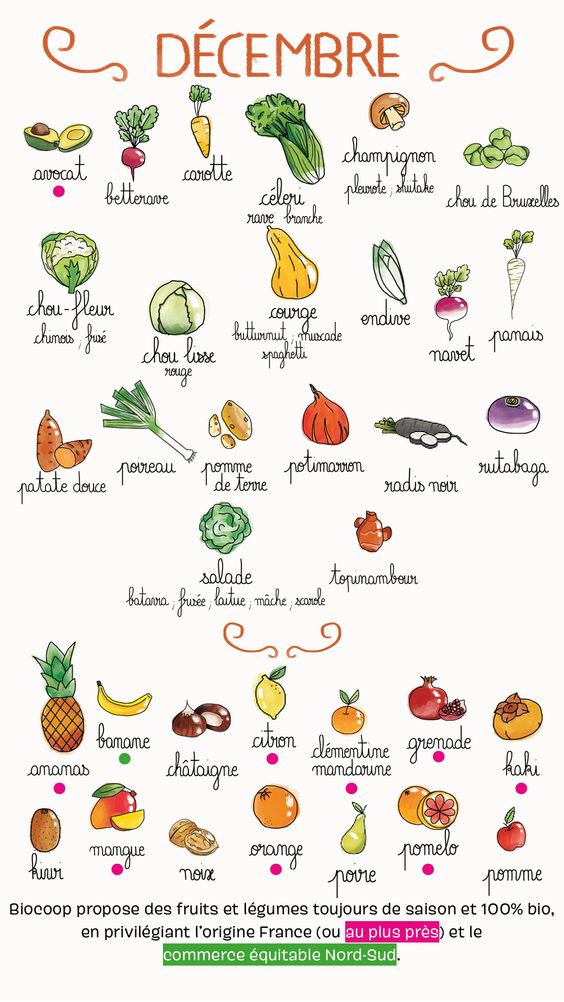 DÉCEMBRE
avocat
betterave
carotte
céleri
rave branche
champignon
pleurote ; shiitake
chou de Bruxelles
chou-fleur
chinois ; frisé
chou lisse
rouge
courge
butturnut ; muscade
spaghetti
endive
navet
panais
patate douce
poireau
pomme
de terre
potimarron
radis noir
rutabaga
salade
batavia ; frisée ; laitue ; mâche ; scarole
topinambour
ananas
banane
châtaigne
citron
clémentine
mandarine
grenade
kaki
kiwi
mangue
noix
orange
poire
pomelo
pomme
Biocoop propose des fruits et légumes toujours de saison et 100% bio,
en privilégiant l'origine France (ou au plus près) et le
commerce équitable Nord-Sud.